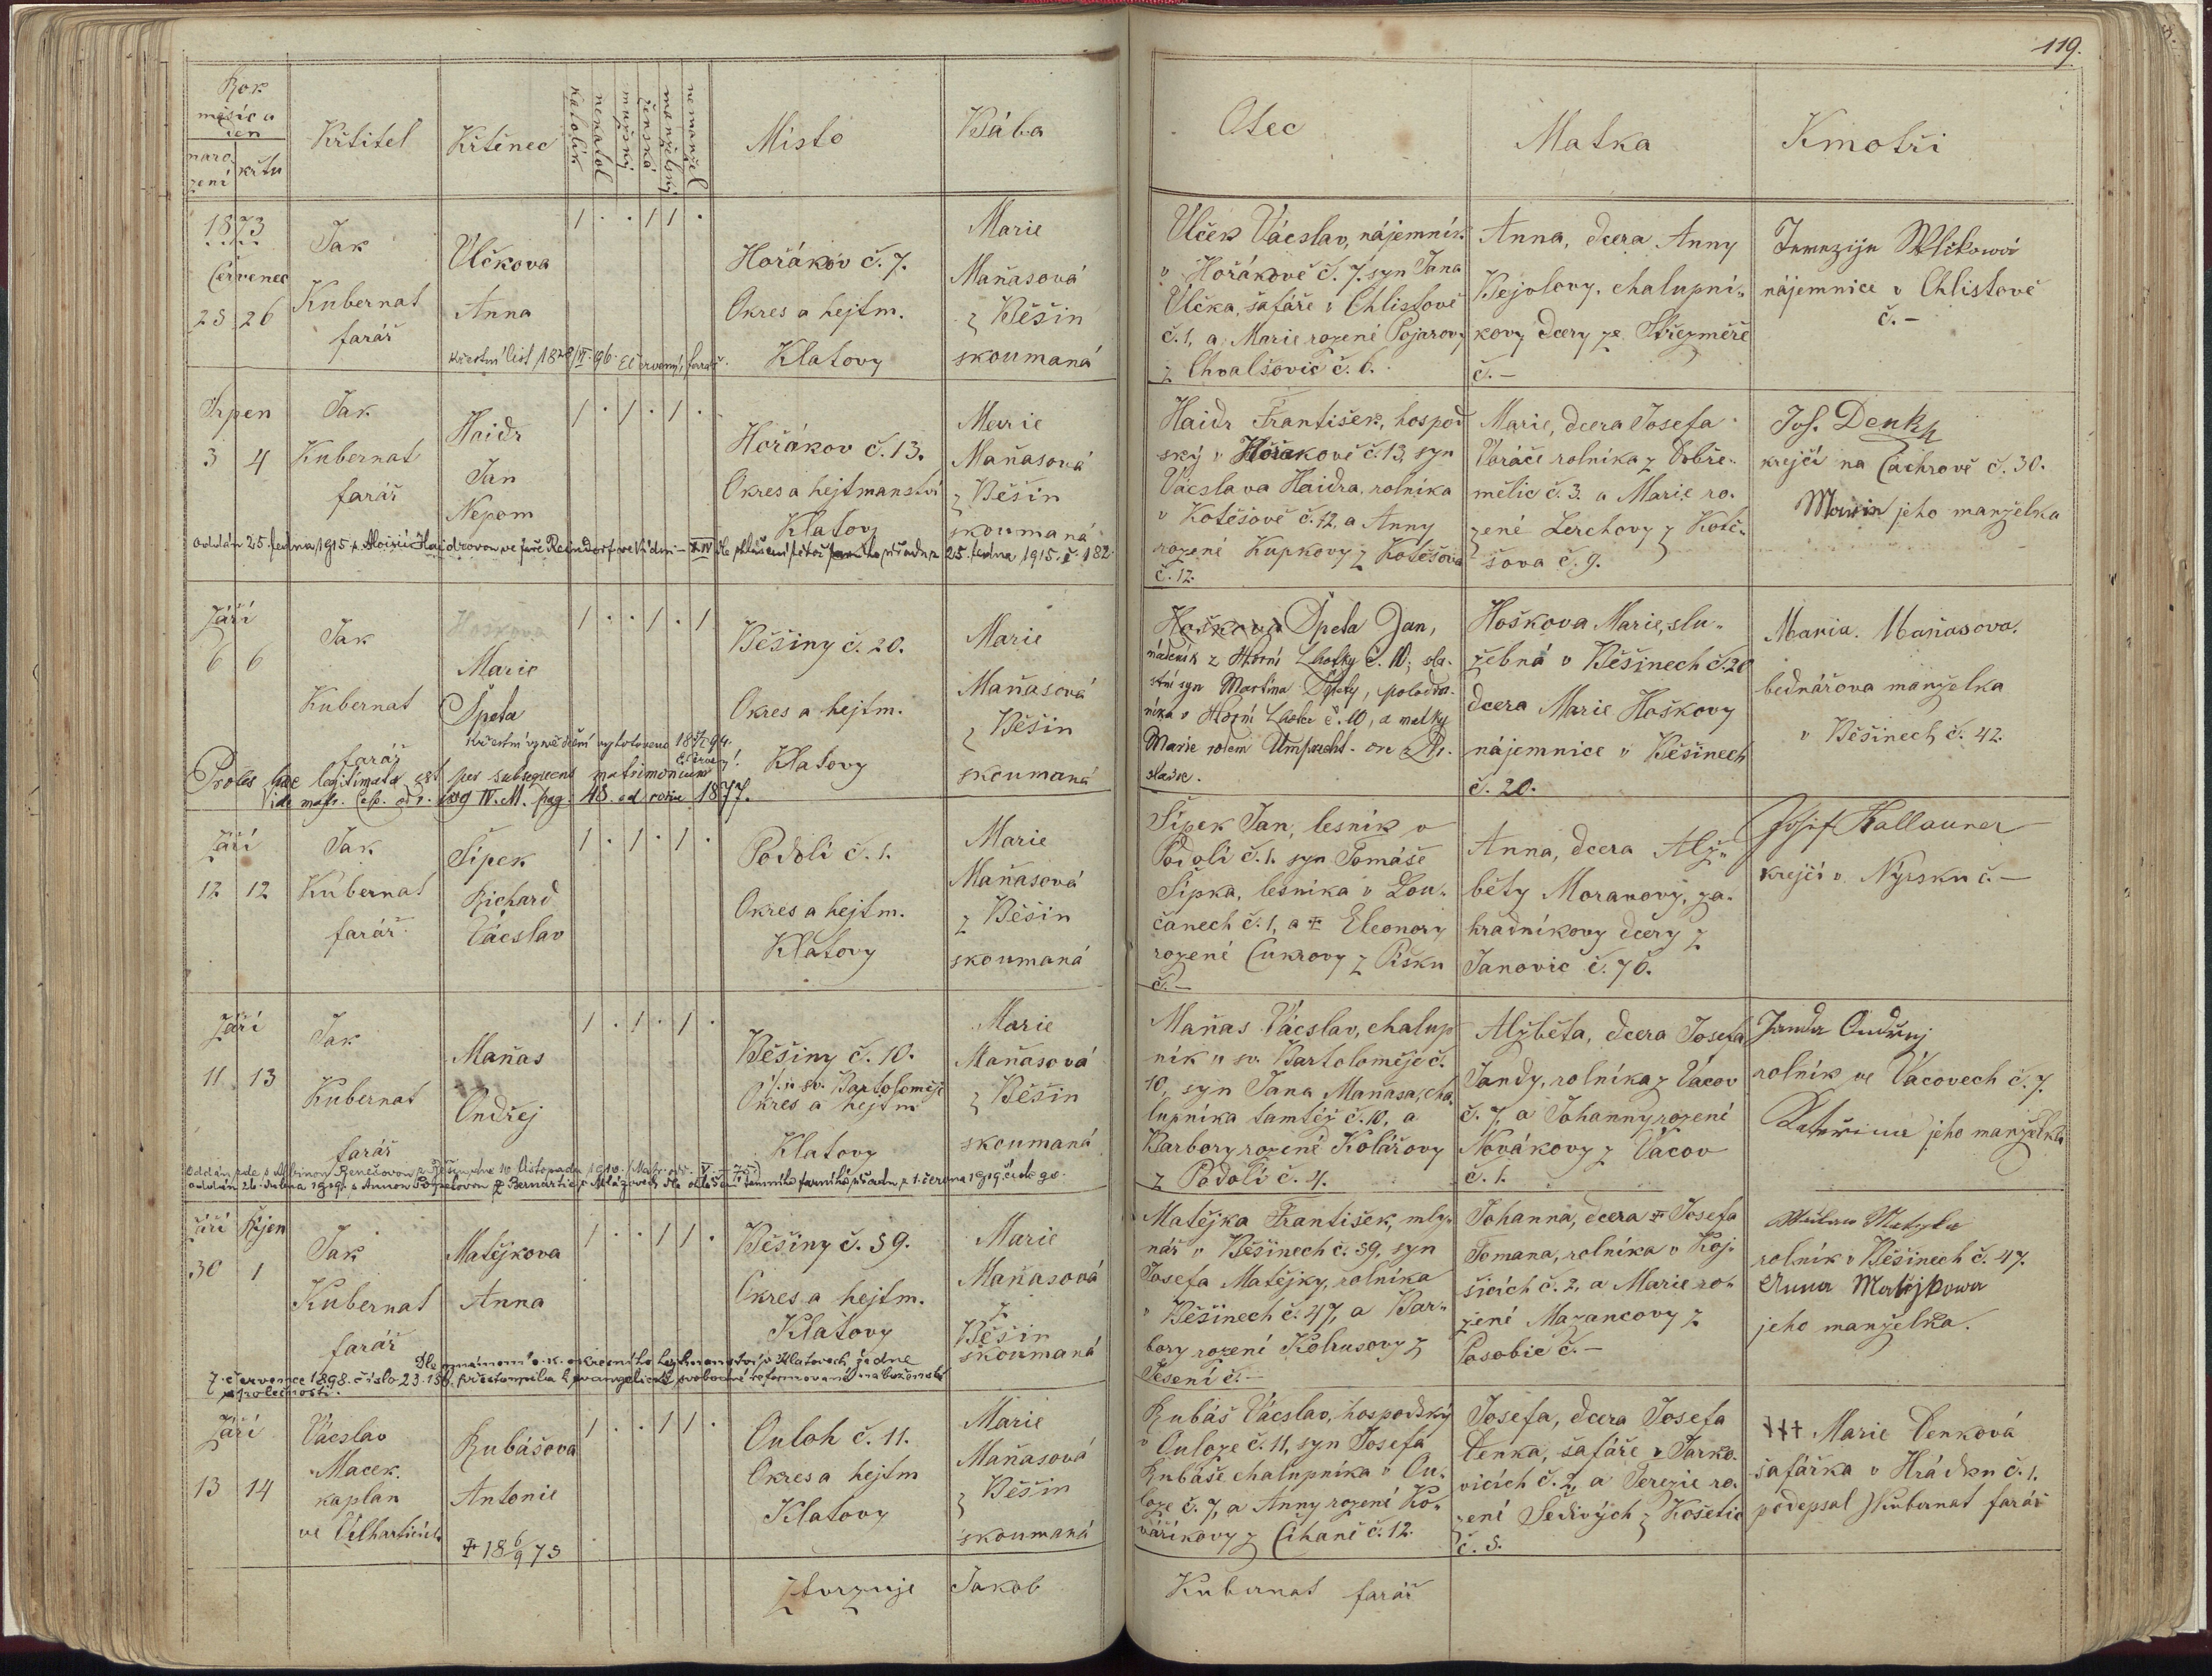 119.
Rok
měsíc a
den
naro
zení
křtu
Křtitel
Křtěnec
katolík
nekatol
mužský
ženská
manželský
nemanžel
Místo
Bába
Otec
Matka
Kmotři
1873
Červenec
23 26
Jak
Kubernat
farář
Ulčkova
Anna
1 . . 1 1 .
Hořákov č. 7.
Okres a hejtm.
Klatovy
Marie
Maňasová
z Běšin
skoumaná
Ulček Václav, nájemník
v Hořákově č. 7, syn Jana
Ulčka, šafáře v Chlistově
č. 1, a Marie rozené Pojarovy
z Chvalšovic č. 6.
Anna, dcera Anny
Bejvlovy, chalupní-
kovy dcery ze Střezměře
č. –
nájemnice v Chlistově
č. –
Srpen
3 4
Jak
Kubernat
farář
Haidr
Jan
Nepom
1 . 1 . 1 .
Hořákov č. 13.
Okres a hejtmanství
Klatovy
Marie
Maňasová
z Běšin
skoumaná
Haidr František, hospod
ský v Hořákově č. 13, syn
Václava Haidra, rolníka
v Kotěšově č. 12, a Anny
rozené Kupkovy z Kotěšova
č. 12.
Marie, dcera Josefa
Voráče rolníka z Dobře-
mělic č. 3. a Marie ro-
zené Lerchovy z Kotě-
šova č. 9.
Jos. Denk
krejčí na Čachrově č. 30.
jeho manželka
Září
6 6
Jak
Kubernat
farář
Hoškova
Marie
Špeta
1 . . 1 . 1
Běšiny č. 20.
Okres a hejtm.
Klatovy
Marie
Maňasová
z Běšin
skoumaná
Proles haec legitimata est per subsequens matrimonium
pag. 48. ad 1877.
Hoškova Špeta Jan,
nádeník z Horní Lhotky č. 10; vla-
stní syn Martina Špety,
v Horní Lhotce č. 10, a matky
Marie rozem Umprecht
Hoškova Marie, slu-
žebná v Běšinech č. 20
dcera Marie Hoškovy
nájemnice v Běšinech
č. 20.
Maria. Maňasova.
bednářova manželka
v Běšinech č. 42.
Září
12 12
Jak
Kubernat
farář
Šípek
Richard
Václav
1 . 1 . 1 .
Podolí č. 1.
Okres a hejtm.
Klatovy
Marie
Maňasová
z Běšin
skoumaná
Šípek Jan, lesník v
Podolí č. 1. syn Tomáše
Šípka, lesníka v Lou-
čanech č. 1, a ✝ Eleonory
rozené Cukrovy z Písku
č. –
Anna, dcera Alž-
běty Moranovy, za-
hradníkovy dcery z
Janovic č. 70.
Josif Kallauner
krejčí v Nýrsku č. –
Září
11 13
Jak
Kubernat
farář
Maňas
Ondřej
1 . 1 . 1 .
Běšiny č. 10.
u sv. Bartoloměje
Okres a hejtm
Klatovy
Marie
Maňasová
z Běšin
skoumaná
Maňas Václav, chalup
ník u sv. Bartoloměje č.
10, syn Jana Maňasa, cha
lupníka tamtéž č. 10, a
Barbory rozené Kolářovy
z Podolí č. 4.
Alžběta, dcera Josefa
Jandy, rolníka z Vacov
č. 7, a Johanny rozené
Novákovy z Vacov
č. 1.
Janda Ondřej
rolník ve Vacovech č. 7.
Kateřina jeho manželka
Září Říjen
30 1
Jak
Kubernat
farář
Matějkova
Anna
1 . . 1 1 .
Běšiny č. 39.
Okres a hejtm.
Klatovy
Marie
Maňasová
z
Běšin
skoumaná
7. července 1898. číslo
společnosti.
Matějka František, mly-
nář v Běšinech č. 39, syn
Josefa Matějky, rolníka
v Běšinech č. 47, a Bar-
bory rození Kohusovy z
Jesení č. –
Johanna, dcera ✝ Josefa
Tomana, rolníka v Koj-
šicích č. 2, a Marie ro-
zené Mazancovy z
Posobic č. –
rolník v Běšinech č. 47.
Anna Matějkowa
jeho manželka.
Září
13 14
Václav
Macek
kaplan
ve Velharticích
Rubášova
Antonie
✝ 18 6/9 73
1 . . 1 1 .
Ouloh č. 11.
Okres a hejtm
Klatovy
Marie
Maňasová
z Běšin
skoumaná
Rubáš Václav, hospodský
v Ouloze č. 11, syn Josefa
Rubáše chalupníka v Ou-
loze č. 7, a Anny rozené Ko-
váříkovy z Číhaně č. 12.
Josefa, dcera Josefa
Denka, šafáře v Jarko-
vicích č. 2, a Terezie ro-
zení Šedivých z Košetic
č. 5.
††† Marie Denková
šafářka v Hrádku č. 1.
podepsal J Kubernat farář
Ztvrzuje Jakob
Kubernat farář